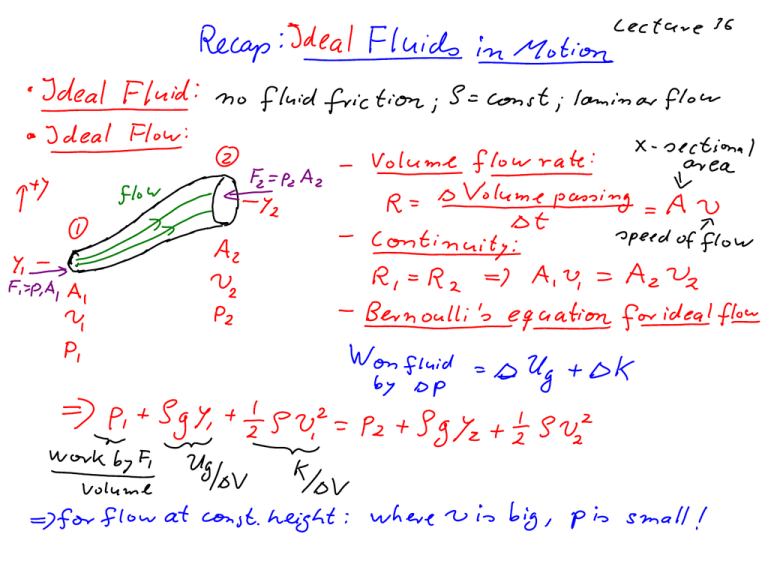 Lecture 36
Recap: Ideal Fluids in Motion
• Ideal Fluid: no fluid friction; ρ = const; laminar flow
• Ideal Flow:
↑+y
flow
①
②
F₂ = p₂ A₂
— y₂
y₁ —
F₁ = p₁ A₁
A₁
v₁
P₁
A₂
v₂
P₂
– Volume flow rate:
x-sectional area
R = Δ Volume passing / Δt = A v
speed of flow
– Continuity:
R₁ = R₂ ⇒ A₁ v₁ = A₂ v₂
– Bernoulli's equation for ideal flow
W on fluid by Δp = Δ Ug + ΔK
⇒ p₁ + ρ g y₁ + ½ ρ v₁² = p₂ + ρ g y₂ + ½ ρ v₂²
work by F₁ / Volume
Ug/ΔV
K/ΔV
⇒ for flow at const. height: where v is big, p is small!